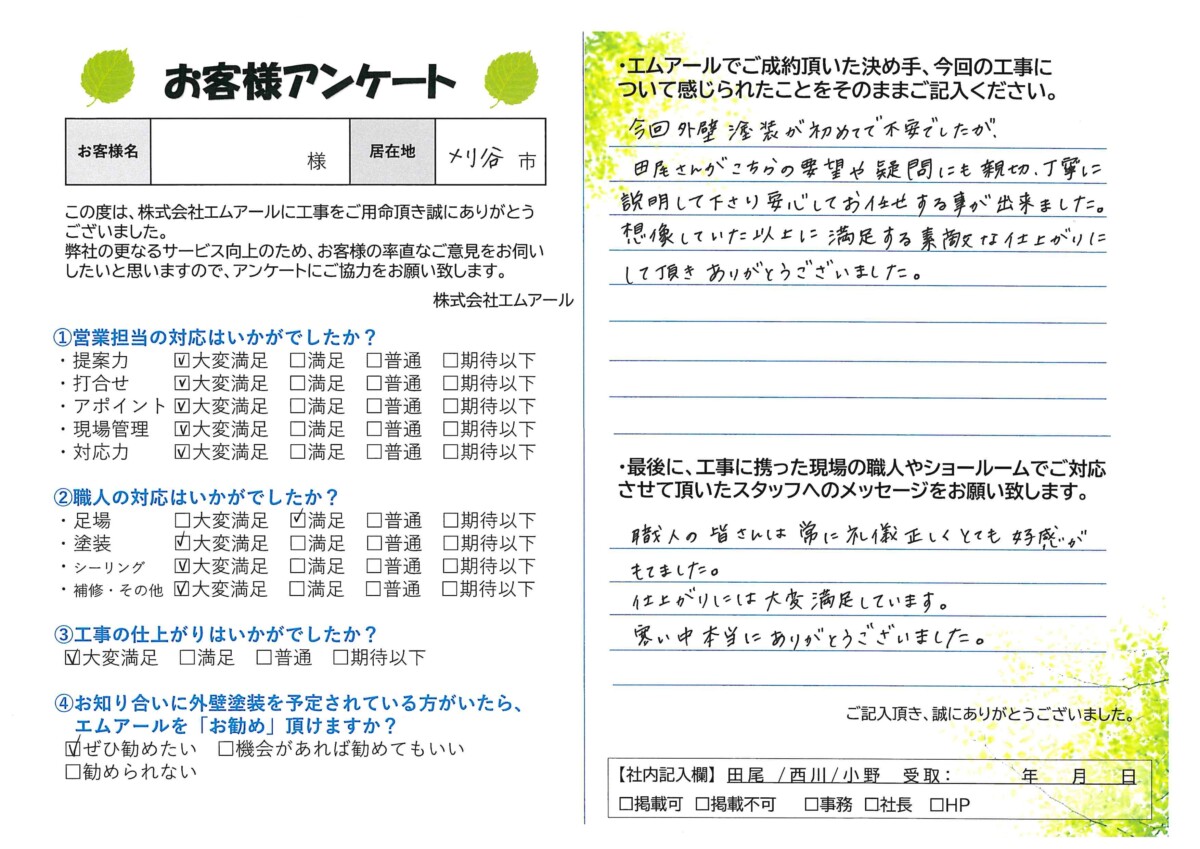 お客様アンケート
お客様名 様 居在地 刈谷 市
この度は、株式会社エムアールに工事をご用命頂き誠にありがとう
ございました。
弊社の更なるサービス向上のため、お客様の率直なご意見をお伺い
したいと思いますので、アンケートにご協力をお願い致します。
株式会社エムアール
①営業担当の対応はいかがでしたか？
・提案力 ☑大変満足 □満足 □普通 □期待以下
・打合せ ☑大変満足 □満足 □普通 □期待以下
・アポイント ☑大変満足 □満足 □普通 □期待以下
・現場管理 ☑大変満足 □満足 □普通 □期待以下
・対応力 ☑大変満足 □満足 □普通 □期待以下
②職人の対応はいかがでしたか？
・足場 □大変満足 ☑満足 □普通 □期待以下
・塗装 ☑大変満足 □満足 □普通 □期待以下
・シーリング ☑大変満足 □満足 □普通 □期待以下
・補修・その他 ☑大変満足 □満足 □普通 □期待以下
③工事の仕上がりはいかがでしたか？
☑大変満足 □満足 □普通 □期待以下
④お知り合いに外壁塗装を予定されている方がいたら、
エムアールを「お勧め」頂けますか？
☑ぜひ勧めたい □機会があれば勧めてもいい
□勧められない
・エムアールでご成約頂いた決め手、今回の工事に
ついて感じられたことをそのままご記入ください。
今回外壁塗装が初めてで不安でしたが、
田尾さんがこちらの要望や疑問にも親切、丁寧に
説明して下さり安心してお任せする事が出来ました。
想像していた以上に満足する素敵な仕上がりに
して頂きありがとうございました。
・最後に、工事に携った現場の職人やショールームでご対応
させて頂いたスタッフへのメッセージをお願い致します。
職人の皆さんは常に礼儀正しくとても好感が
もてました。
仕上がりには大変満足しています。
寒い中本当にありがとうございました。
ご記入頂き、誠にありがとうございました。
【社内記入欄】田尾 /西川/小野 受取： 年 月 日
□掲載可 □掲載不可 □事務 □社長 □HP